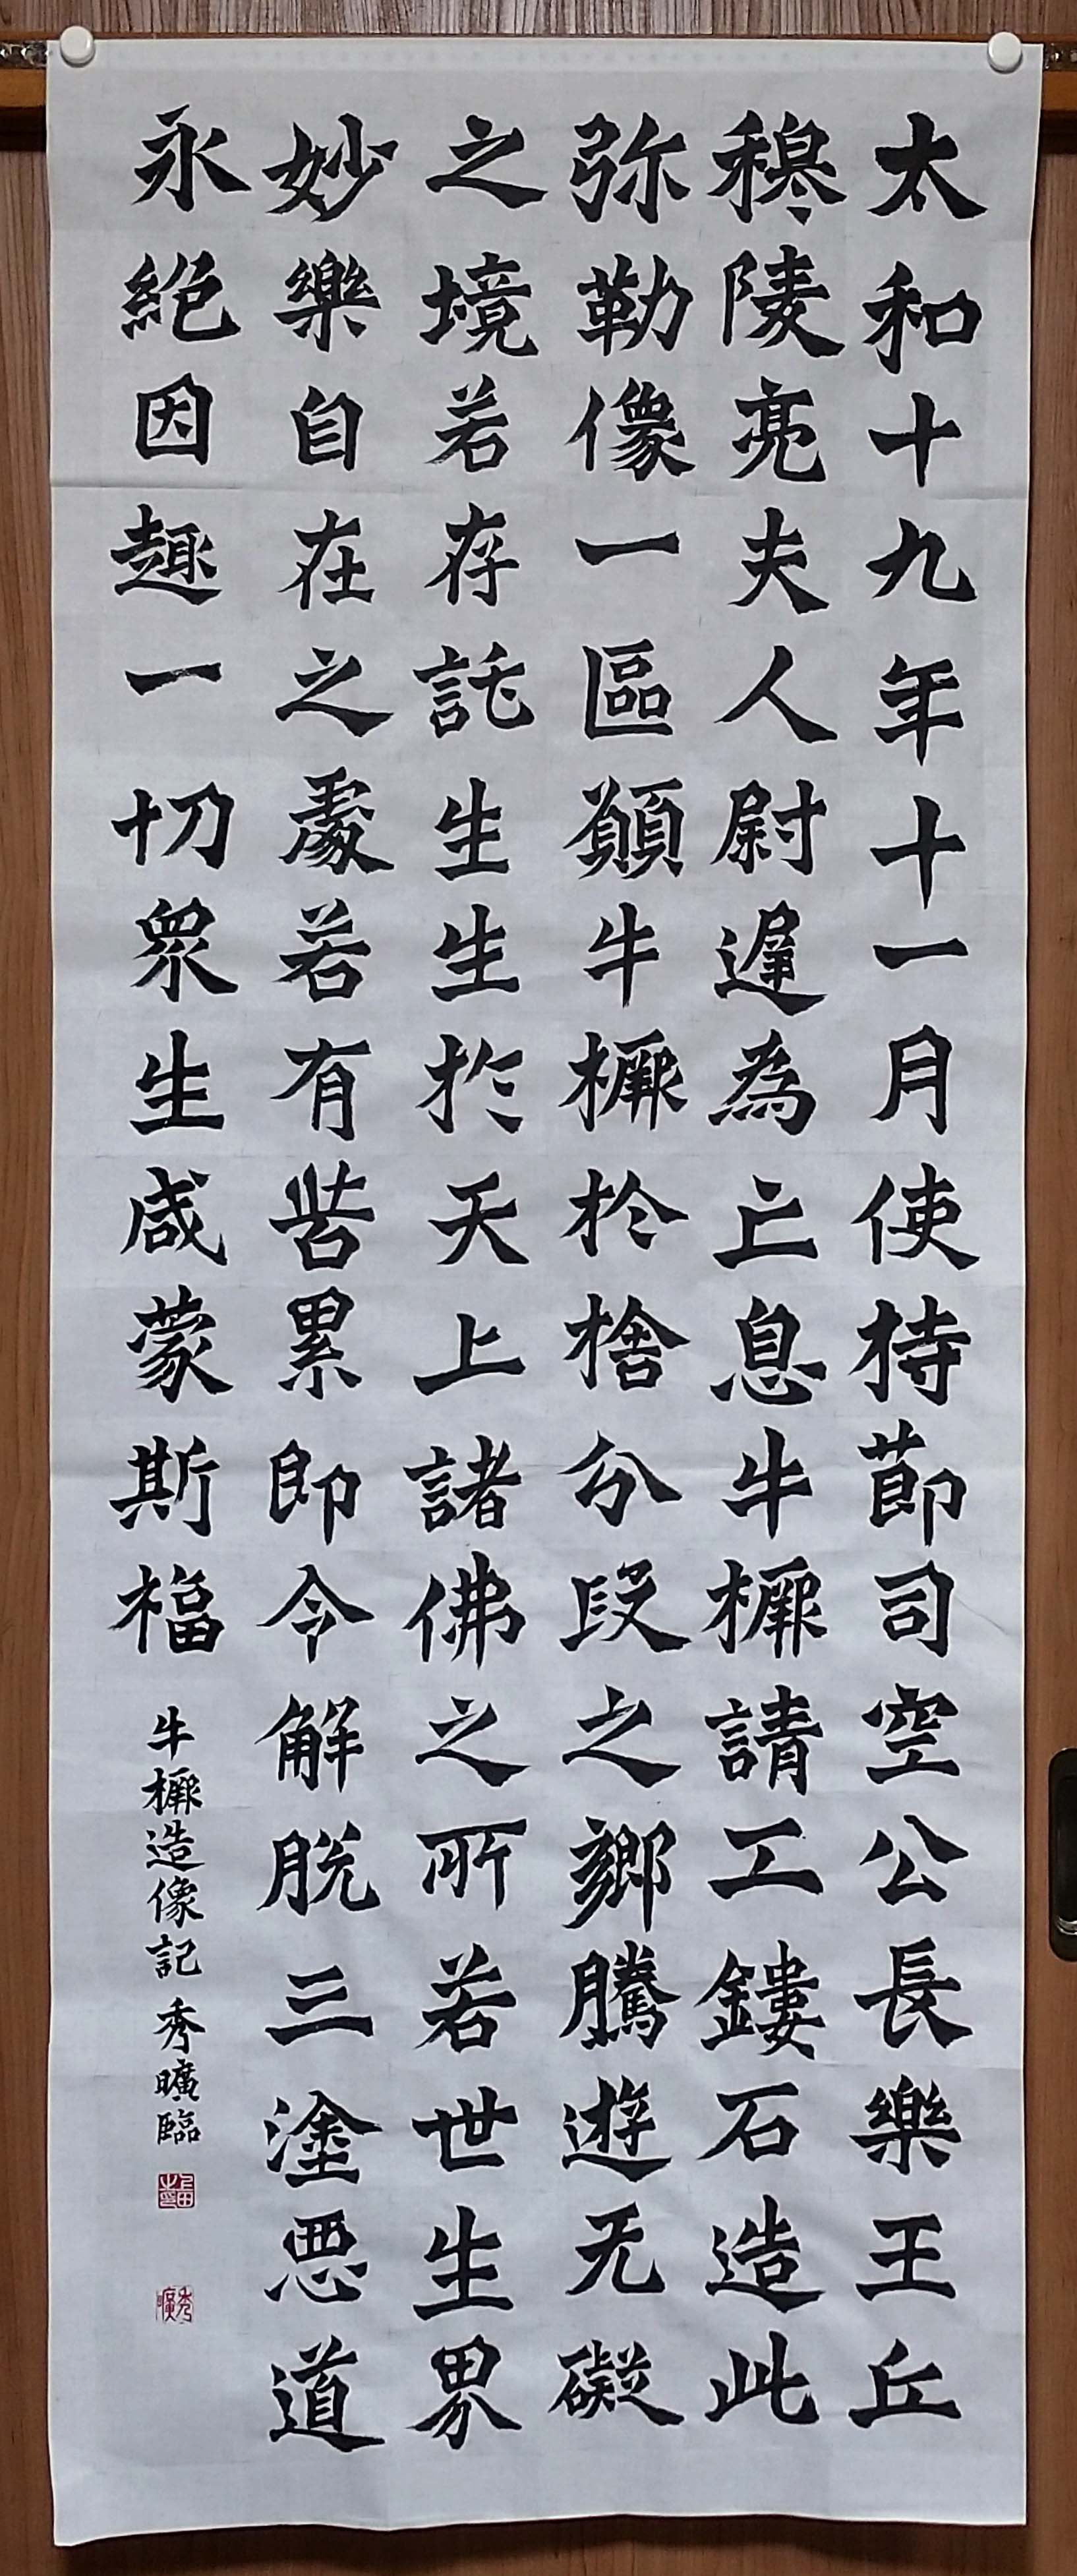 太和十九年十一月使持莭司空公長樂王丘
穆陵亮夫人尉遲為亡息牛橛請工鏤石造此
弥勒像一區願牛橛於捨分段之鄉騰遊无礙
之境若存託生生於天上諸佛之所若世生界
妙樂自在之處若有苦累即令解脱三塗悪道
永絶因趣一切衆生咸蒙斯福
牛橛造像記 秀曠臨
秀曠